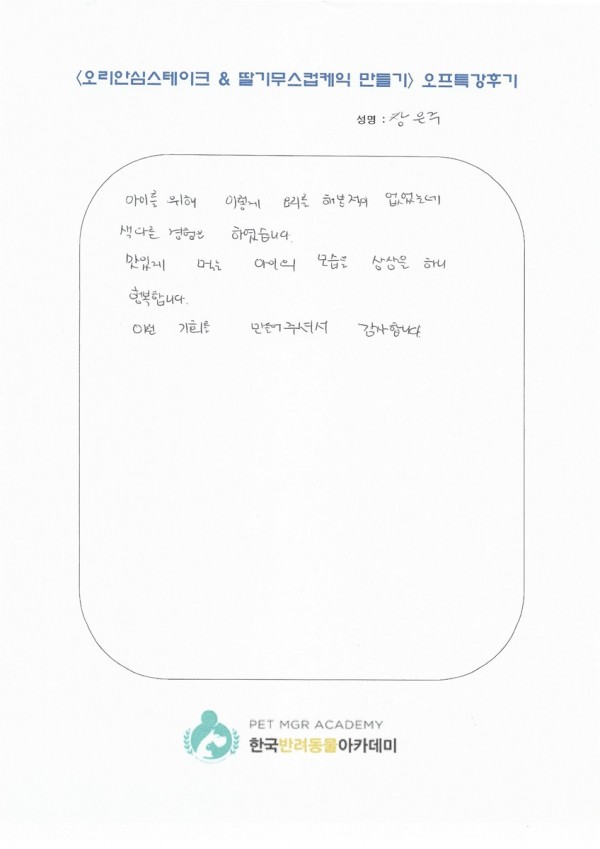 <오리안심스테이크 & 딸기무스컵케익 만들기> 오프특강후기
성명 : 장은주
아이를 위해 이렇게 요리를 해본적이 없었는데
색다른 경험을 하였습니다.
맛있게 먹을 아이의 모습을 상상을 하니
행복합니다.
이런 기회를 만들어주셔서 감사합니다.
PET MGR ACADEMY
한국반려동물아카데미